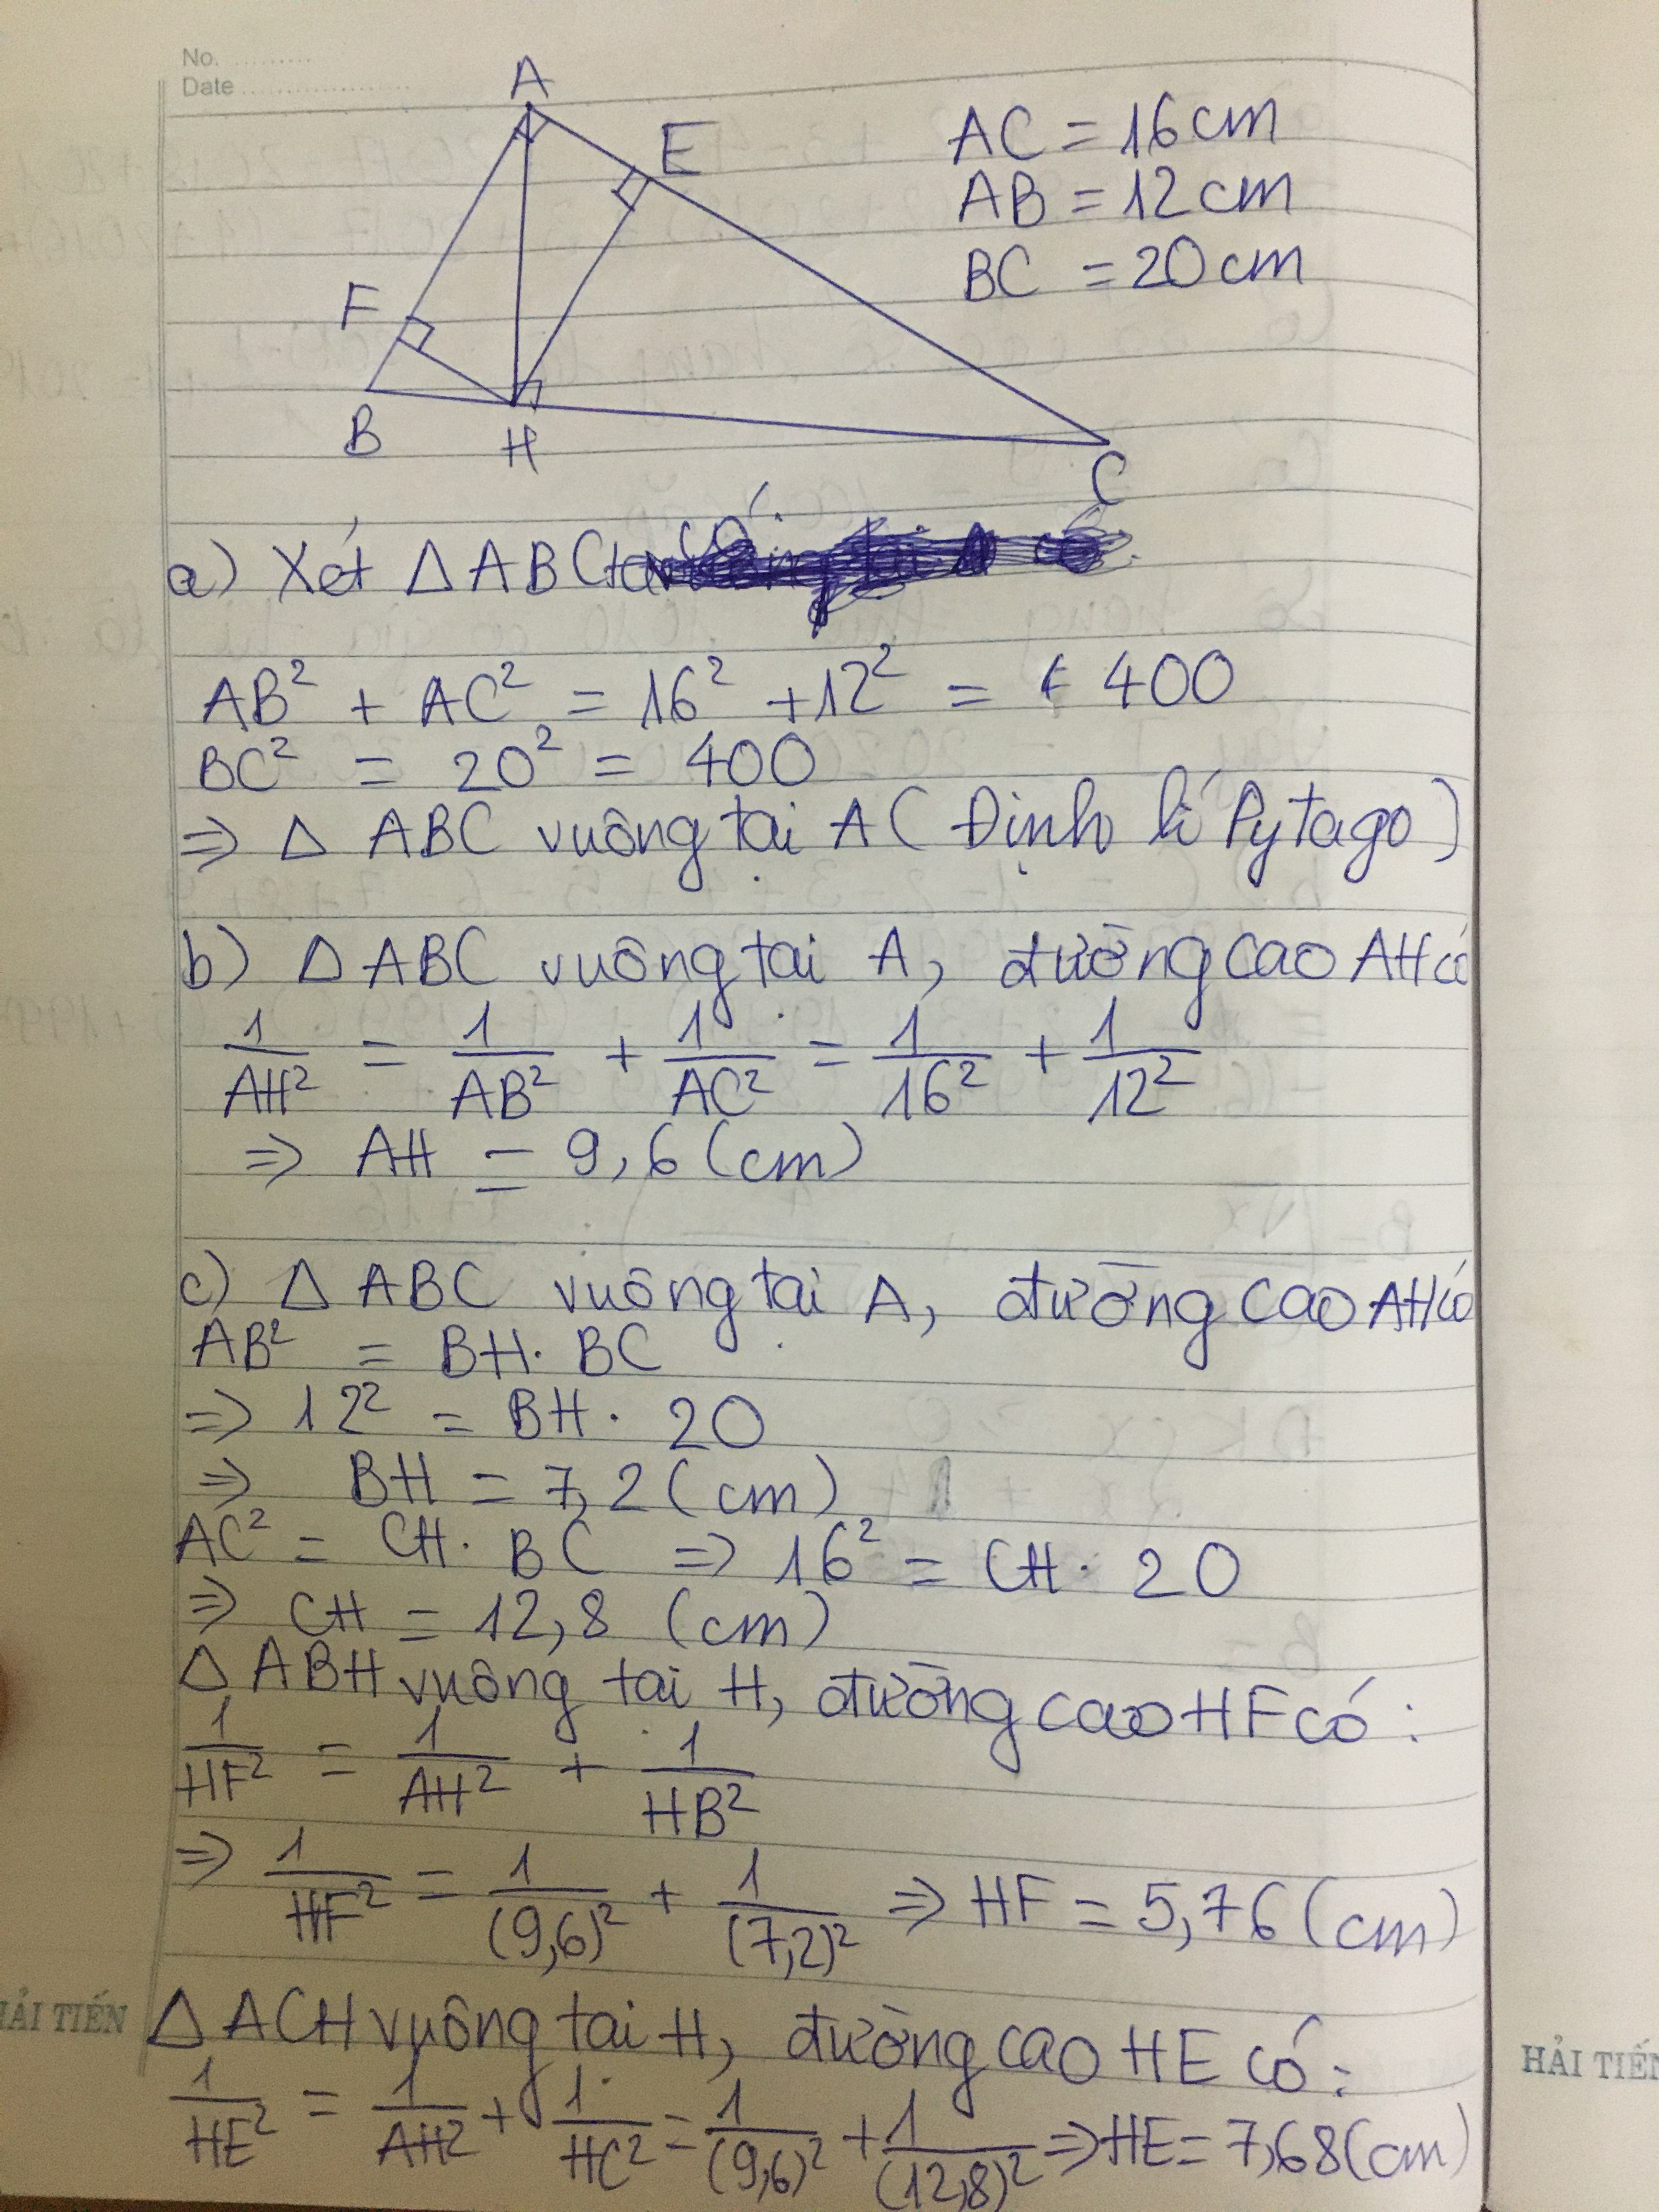 No.
Date
A
E
F
B
H
C
AC = 16cm
AB = 12cm
BC = 20cm
a) Xét Δ ABC có:
AB² + AC² = 16² + 12² = 400
BC² = 20² = 400
⇒ Δ ABC vuông tại A (Định lí Pytago)
b) Δ ABC vuông tại A, đường cao AH có
1/AH² = 1/AB² + 1/AC² = 1/16² + 1/12²
⇒ AH = 9,6 (cm)
c) Δ ABC vuông tại A, đường cao AH có
AB² = BH. BC
⇒ 12² = BH. 20
⇒ BH = 7,2 (cm)
AC² = CH. BC ⇒ 16² = CH. 20
⇒ CH = 12,8 (cm)
Δ ABH vuông tại H, đường cao HF có:
1/HF² = 1/AH² + 1/HB²
⇒ 1/HF² = 1/(9,6)² + 1/(7,2)² ⇒ HF = 5,76 (cm)
Δ ACH vuông tại H, đường cao HE có:
1/HE² = 1/AH² + 1/HC² = 1/(9,6)² + 1/(12,8)² ⇒ HE = 7,68 (cm)
HẢI TIẾN
HẢI TIẾN